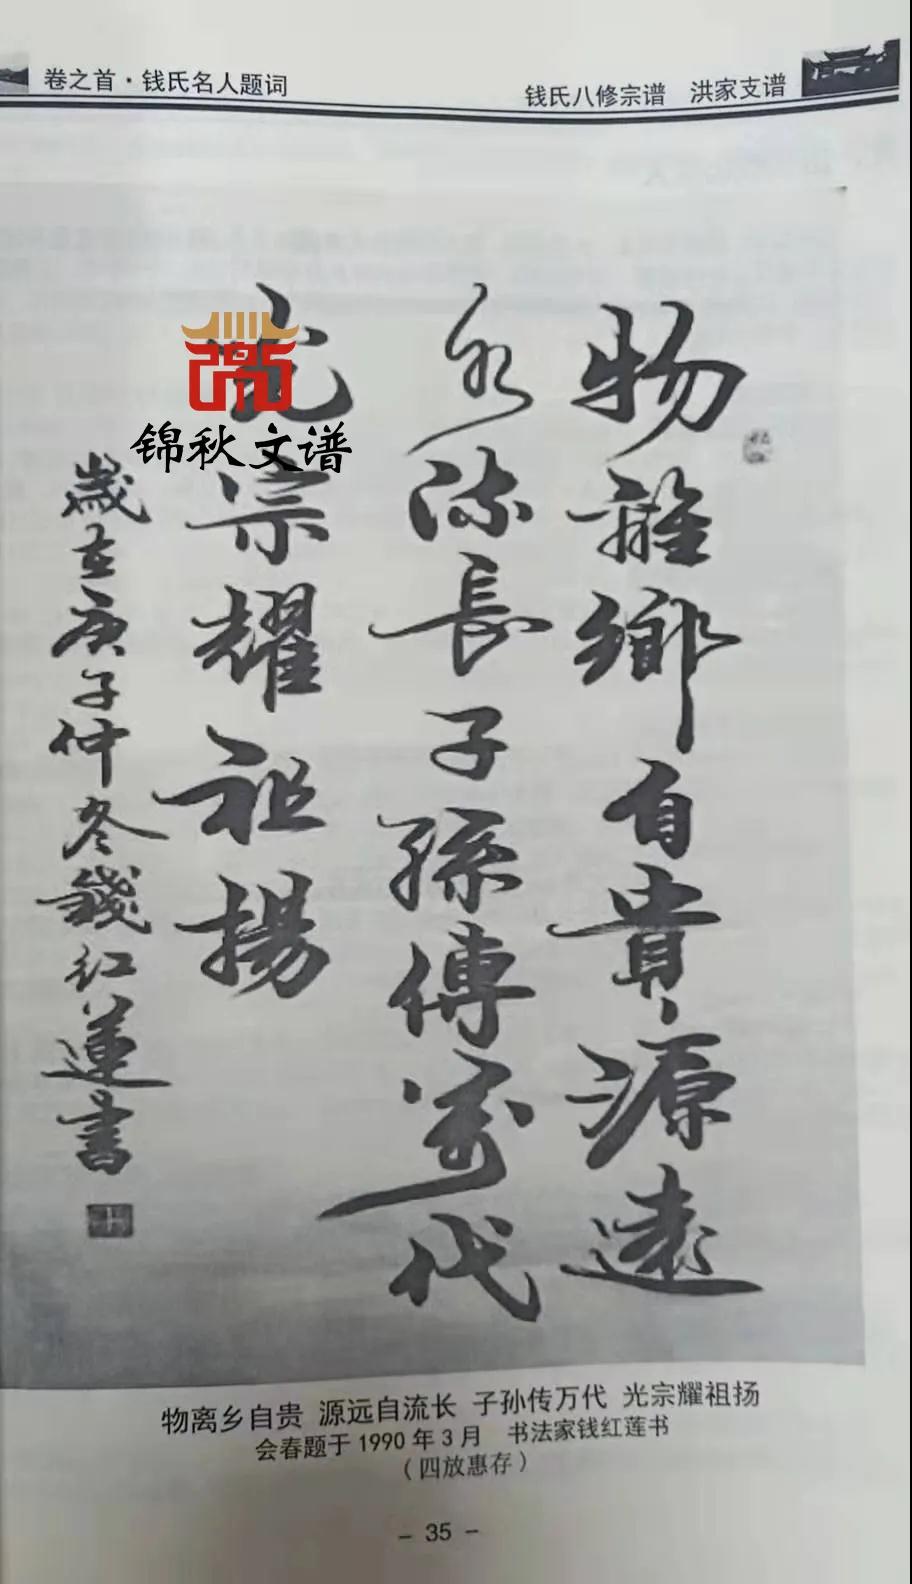 卷之首·钱氏名人题词
钱氏八修宗谱 洪家支谱
物離鄉自貴源遠
水流長子孫傳萬代
光宗耀祖揚
歲在庚子仲冬錢红蓮書
锦秋文谱
物离乡自贵 源远自流长 子孙传万代 光宗耀祖扬
会春题于1990年3月 书法家钱红莲书
(四放惠存)
- 35 -